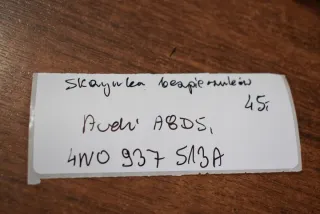 Skrzynka bezpieczników
45,
Audi A8D5,
4N0 937 513A